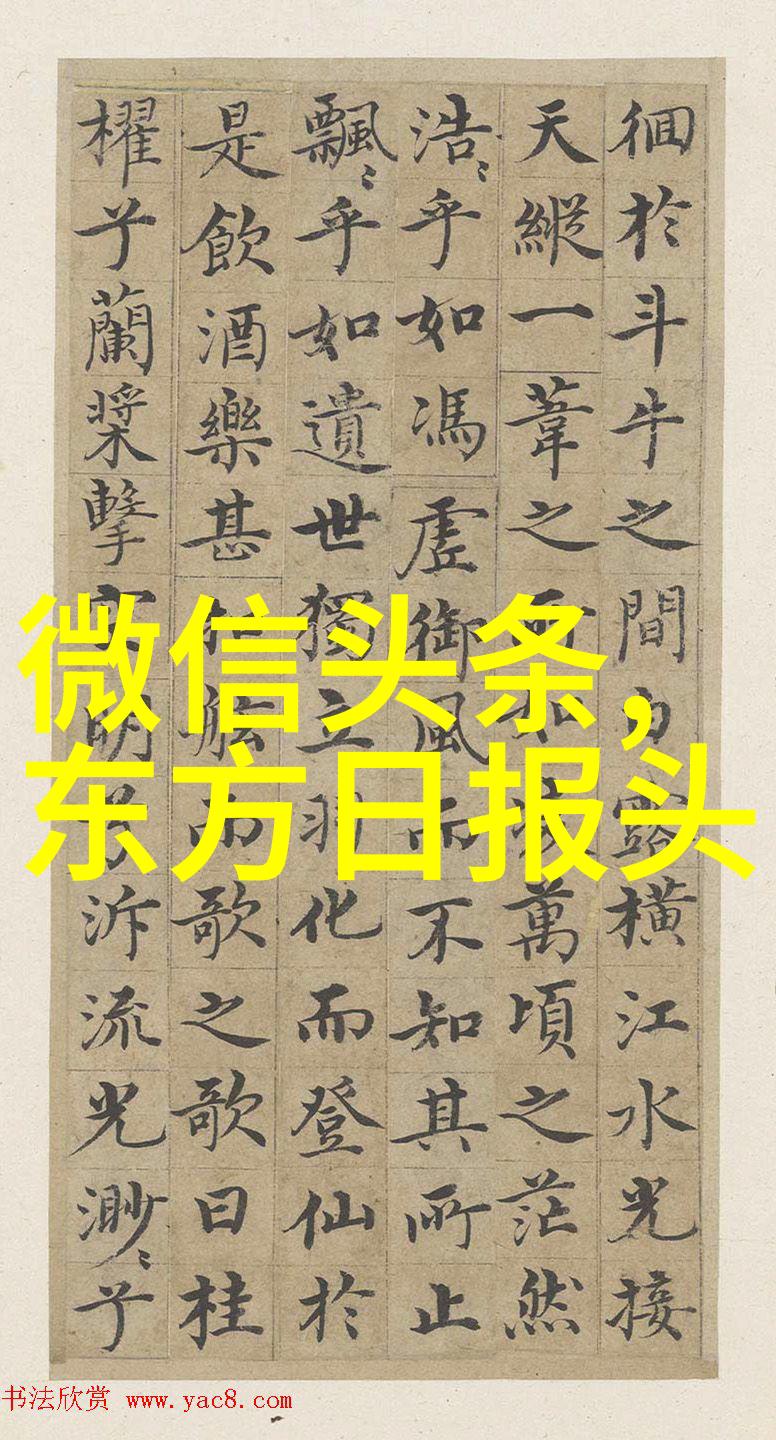 徊於斗牛之間白露橫江水光接
天縱一葦之所如萬頃之茫然
浩〻乎如馮虛御風而不知其所止
飄〻乎如遺世獨立羽化而登仙於
是飲酒樂甚舷而歌之歌曰桂
櫂兮蘭槳擊空明兮泝流光渺〻兮
微信头条，
东方日报头
书法欣赏 www.yac8.com